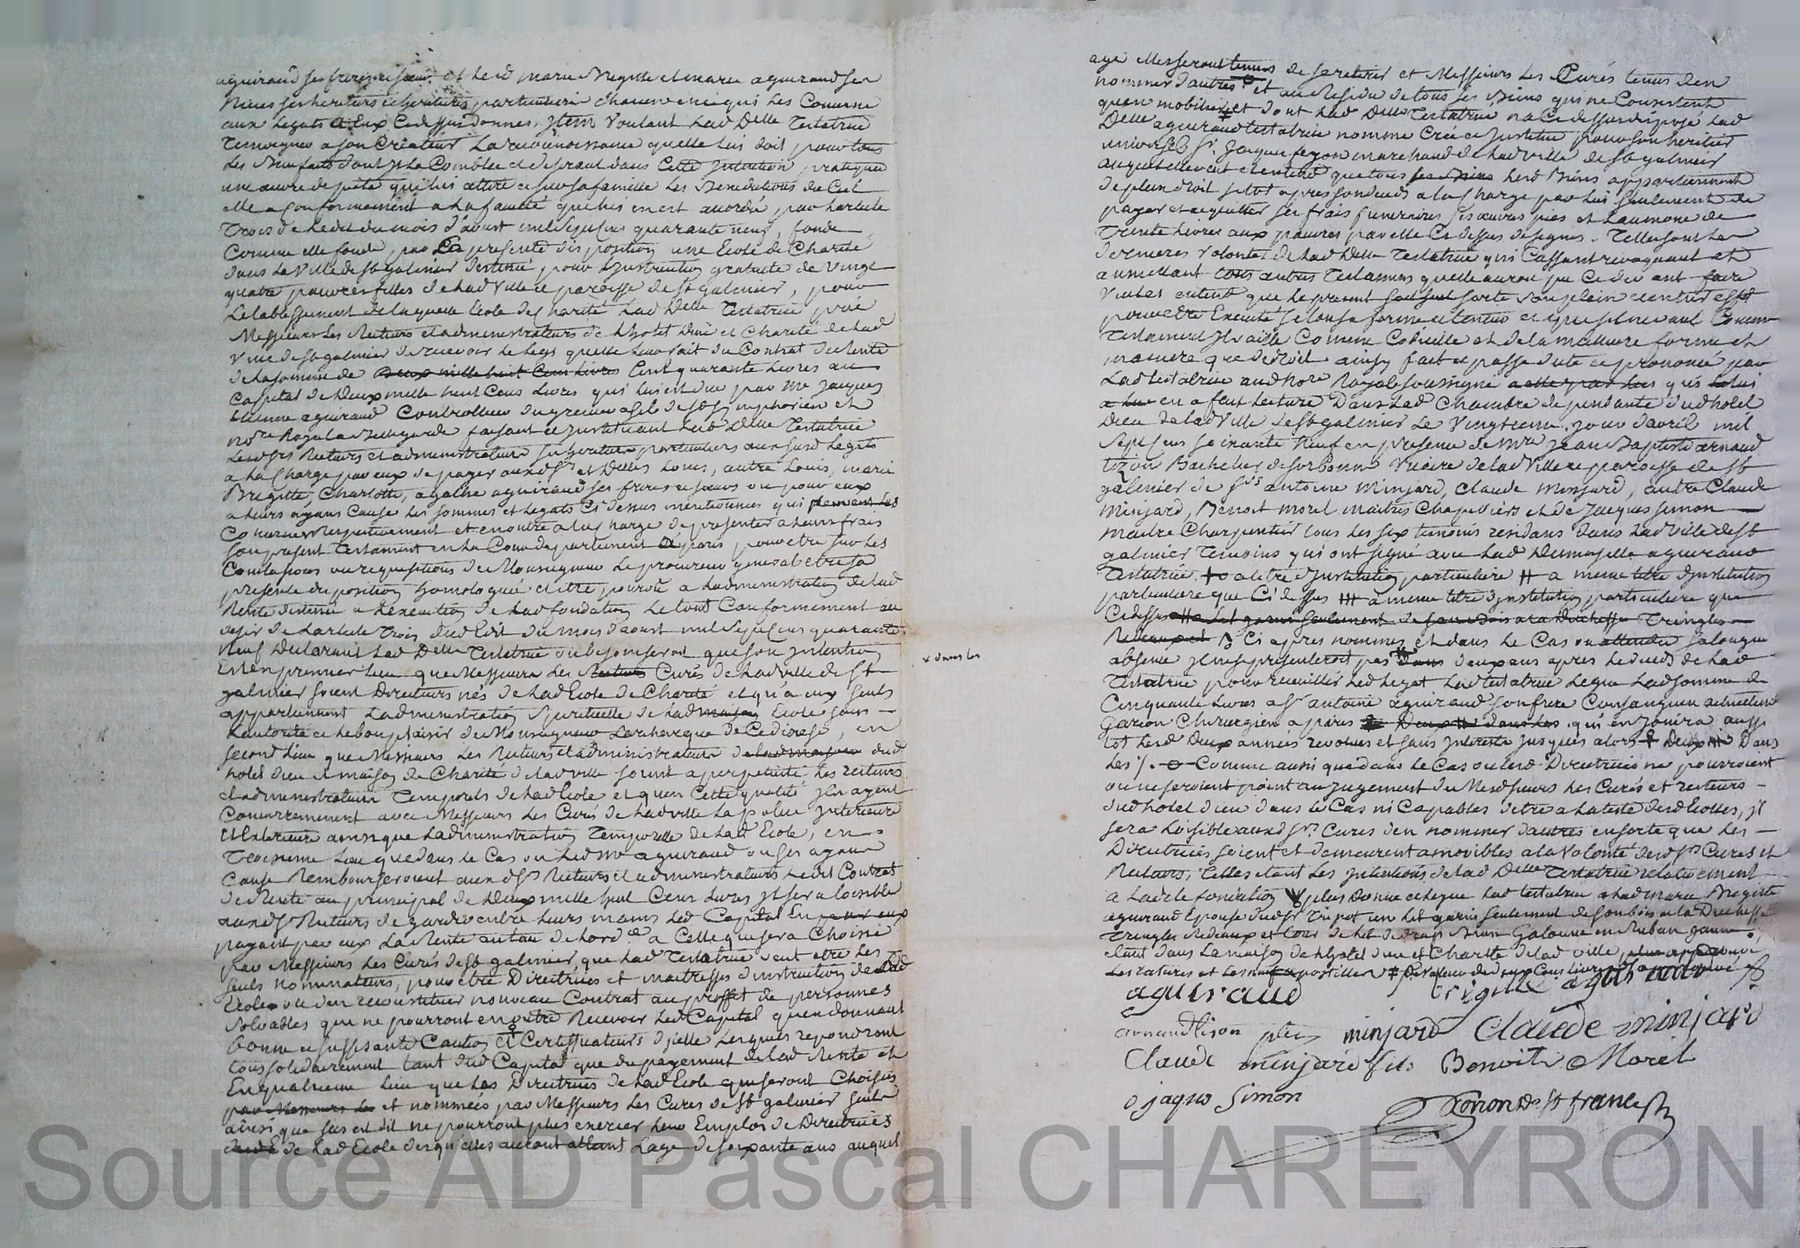 aguiraud ses freres et sœurs et lesd marie Brigitte et marie aguiraud ses
Nieces ses heritiers et heritieres particulieres chacune en ce qui les Concerne
aux Legats a Eux Cy dessus donnes, Item Voulant Lad Delle Testatrice
Temoigner a son Createur La reconnoissance quelle lui doit pour tous
Les Bienfaits dont Il La Comblée et desirant dans Cette Intention pratiquer
une œuvre de pieté qui lui attire et sur sa famille Les Benedictions du Ciel
elle a Conformement a La faculté qui lui en est accordé par Larticle
Trois de Ledit du mois d'aoust mil sept cens quarante neuf, fondé
Comme elle fonde par La presente disposition une Ecole de Charité
dans La Ville de St galmier destinée pour L'instruction gratuite de Vingt
quatre pauvres filles de Lad Ville et paroisse de St galmier, pour
Le tablissement de laquelle Ecole de Charité Lad Delle Testatrice prie
Messieurs Les Recteurs et administrateurs de Lhotel Dieu et Charité de Lad
Ville de St galmier de recevoir Le Legs quelle leur fait du Contrat de Rente
de La somme de Deux mille huit Cens Livres Cent quarante Livres au
Capital de Deux mille huit Cens Livres qui lui est due par Me Jacques
Etienne aguiraud Controlleur du grenier a sel de St Simphorien et
nore Royal a Bellegarde faisant et Instituant Lad Delle Testatrice
Lesd Srs Recteurs et administrateurs heritiers particuliers aux susd Legats
a La Charge par eux de payer auxd Srs et Delles Louis, autre Louis, marie
Brigitte, Charlotte, agathe aguiraud ses freres et sœurs ou pour eux
a leurs ayans Cause les sommes et Legats Cy dessus mentionnés qui
Concernent respectivement et en outre a la Charge de presenter a leurs frais
son present Testament en La Cour de parlement de paris pour etre sur Les
Conclusions ou requisitions de Monseigneur Le procureur general etre sa
presente disposition homologuée et etre pourvu a Ladministration de Lad
Rente destinée a Lexecution de Lad fondation, Le tout Conformement au
desir de Larticle Trois dud Edit du mois d'aoust mil sept cens quarante
Neuf Declarant Lad Delle Testatrice ou besoin seroit que son Intention
Est en premier Lieu que Messieurs Les Recteurs Curés de Lad ville de St
galmier soient Directeurs nés de Lad Ecole de Charité et qu'a eux seuls
appartiennent Ladministration Spirituelle de Lad maison Ecole sous
Lautorité et le bon plaisir de Monseigneur Larcheveque de Ce diocese, en
second Lieu que Messieurs Les Recteurs et administrateurs de Lad maison dud
hotel dieu et maison de Charité de Lad ville soient a perpetuité Les recteurs
et administrateurs Temporels de Lad Ecole et quen Cette qualité Ils ayent
Concurremment avec Messieurs Les Curés de Lad ville La police Interieure
et Exterieure ainsy que Ladministration Temporelle de Lad Ecole, en
Troisieme Lieu que dans le Cas ou Led Me aguiraud ou ses ayans
Cause Rembourseroient auxd Srs Recteurs et administrateurs Ledit Contrat
de Rente au principal de Deux mille huit Cens Livres Il sera loisible
auxd Srs Recteurs de garder entre leurs mains Led Capital En
payant par eux La Rente au taux de Lord.ce a Celle qui sera Choisie
par Messieurs Les Curés de St galmier que Lad Testatrice veut etre Les
seuls nominateurs, pour etre Directrices et maitresses d'instruction de Lad
Ecole ou d'en reconstituer nouveau Contrat au proffit de personnes
solvables qui ne pourront en outre Recevoir Led Capital quen donnant
bonne et suffisante Caution et Certifficateurs dicelle Lesquels repondront
Tous solidairement tant dud Capital que du payement de Lad Rente et
En quatrieme Lieu que Les Directrices de Lad Ecole qui seront Choisies
par Messieurs Les et nommées par Messieurs Les Curés de St galmier seuls
ainsi que sus est dit ne pourront plus exercer leur Emploi de Directrices
de Lad Ecole desqu'elles auront atteint Lage de soixante ans auquel
x dans les
age Elles seront tenues de se retirer et Messieurs Les Curés tenus d'en
nommer d'autres, et au Residu de tous ses Biens qui ne Consistent
quen mobilier et dont Lad Delle Testatrice na Cy dessus disposé Lad
Delle aguiraud testatrice nomme Crée et Institue pour son heritier
universel Sr. Jacques feyon marchand de Lad Ville de St galmier
auquel elle veut et entend que tous ses Biens Lesd Biens appartiennent
de plein droit sitot apres son deces a La Charge par lui seulement de
payer et acquitter ses frais funeraires ses œuvres pies et Laumone de
Trente Livres aux pauvres par elle Cy dessus designés. Telles sont Les
dernieres volontés de Lad Delle Testatrice qui Cassant revoquant et
annullant tous autres Testamens quelle auroit pu Cy devant faire
Veut et entend que Le present seul sorte son plein et entier effet
pour etre Executé selon sa forme et teneur et que sil ne vaut Comme
Testament Il vaille Comme Codicille et de la meilleure forme et
maniere que de droit ainsy fait et passé dicté et prononcé par
Lad testatrice aud Nore Royal soussigné qui lui
en a fait Lecture Dans Lad Chambre dependante dud hotel
Dieu de Lad Ville de St galmier Le Vingtieme jour d'avril mil
Sept cens soixante Neuf en presence de Mre Jean Baptiste arnaud
tizon Bachelier de sorbonne Vicaire de Lad Ville et paroisse de St
galmier de Srs antoine Minjard, Claude Minjard, autre Claude
Minjard, Benoit Morel maitres Chapeliers et de Jacques simon
maitre Charpentier tous Les six temoins residans dans Lad ville de St
galmier Temoins qui ont signé avec Lad Demoiselle aguiraud
Testatrice. + a titre d'Institution particuliere # a meme titre d'Institution
particuliere que Cy dessus ### a meme titre d'Institution particuliere que
Cy dessus Tringles
Rideaux et Cy apres nommés et dans Le Cas ou
absence Il ne se presenteroit pas dans deux ans apres Le deces de Lad
Testatrice pour recueillir Led Legat Lad testatrice Legue Lad somme de
Cinquante Livres a Sr antoine aguiraud son frere Consanguin actuellement
Garcon Chirurgien a paris qui en Jouira aussi
tot Lesd Deux années revolues et sans Interets jusques alors + Deux # Dans
Les /. Comme aussi que dans Le Cas ou Lesd Directrices ne pourroient
ou ne seroient point au jugement de Mesd sieurs Les Curés et recteurs
dud hotel dieu dans le Cas ni Capables d'etre a La tete desd Ecolles, Il
sera Loisible auxd Srs. Curés d'en nommer d'autres en sorte que Les
Directrices soient et demeurent amovibles a la Volonté desd Srs Curés et
Recteurs, Telles etant Les Intentions de Lad Delle Testatrice relativement
a Lad fondation plus Donne et Legue Lad testatrice a Lad marie Brigitte
aguiraud Epouse dud Sr Tripot un Lit garni seulement de son bois a la Duchesse
Tringles Rideaux et Tour de Lit de drap Brun Galonné en Ruban jaune
etant dans La maison de Lhotel dieu et Charité de Lad ville
Les ratures et Les apostilles
aguiraud
Brigitte aguiraud
arnaud tison ptre minjard Claude minjard
Claude minjard fils Benoit Morel
Jaques Simon
Ronon de St france
Source AD Pascal CHAREYRON